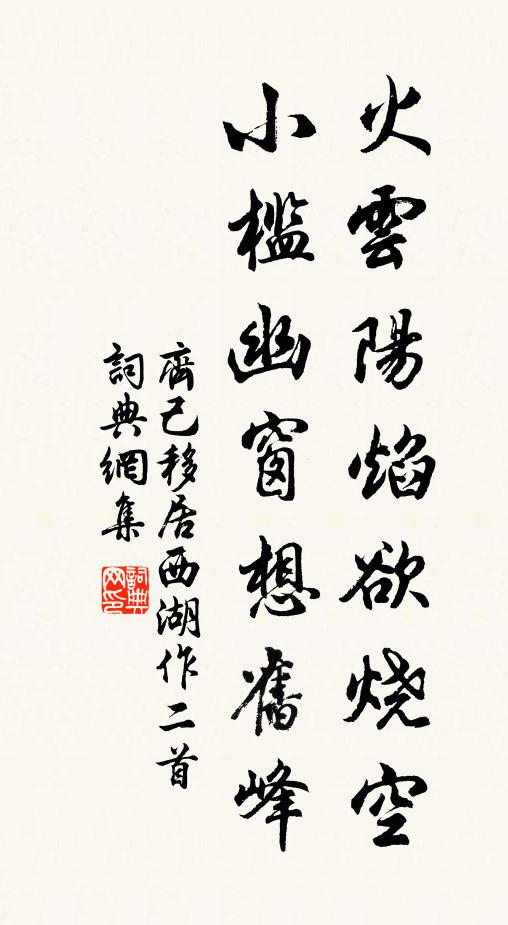 火雲陽焰欲烧空
小檻幽窗想舊峰
齊己移居西湖作二首
詞典網集
詞典网印